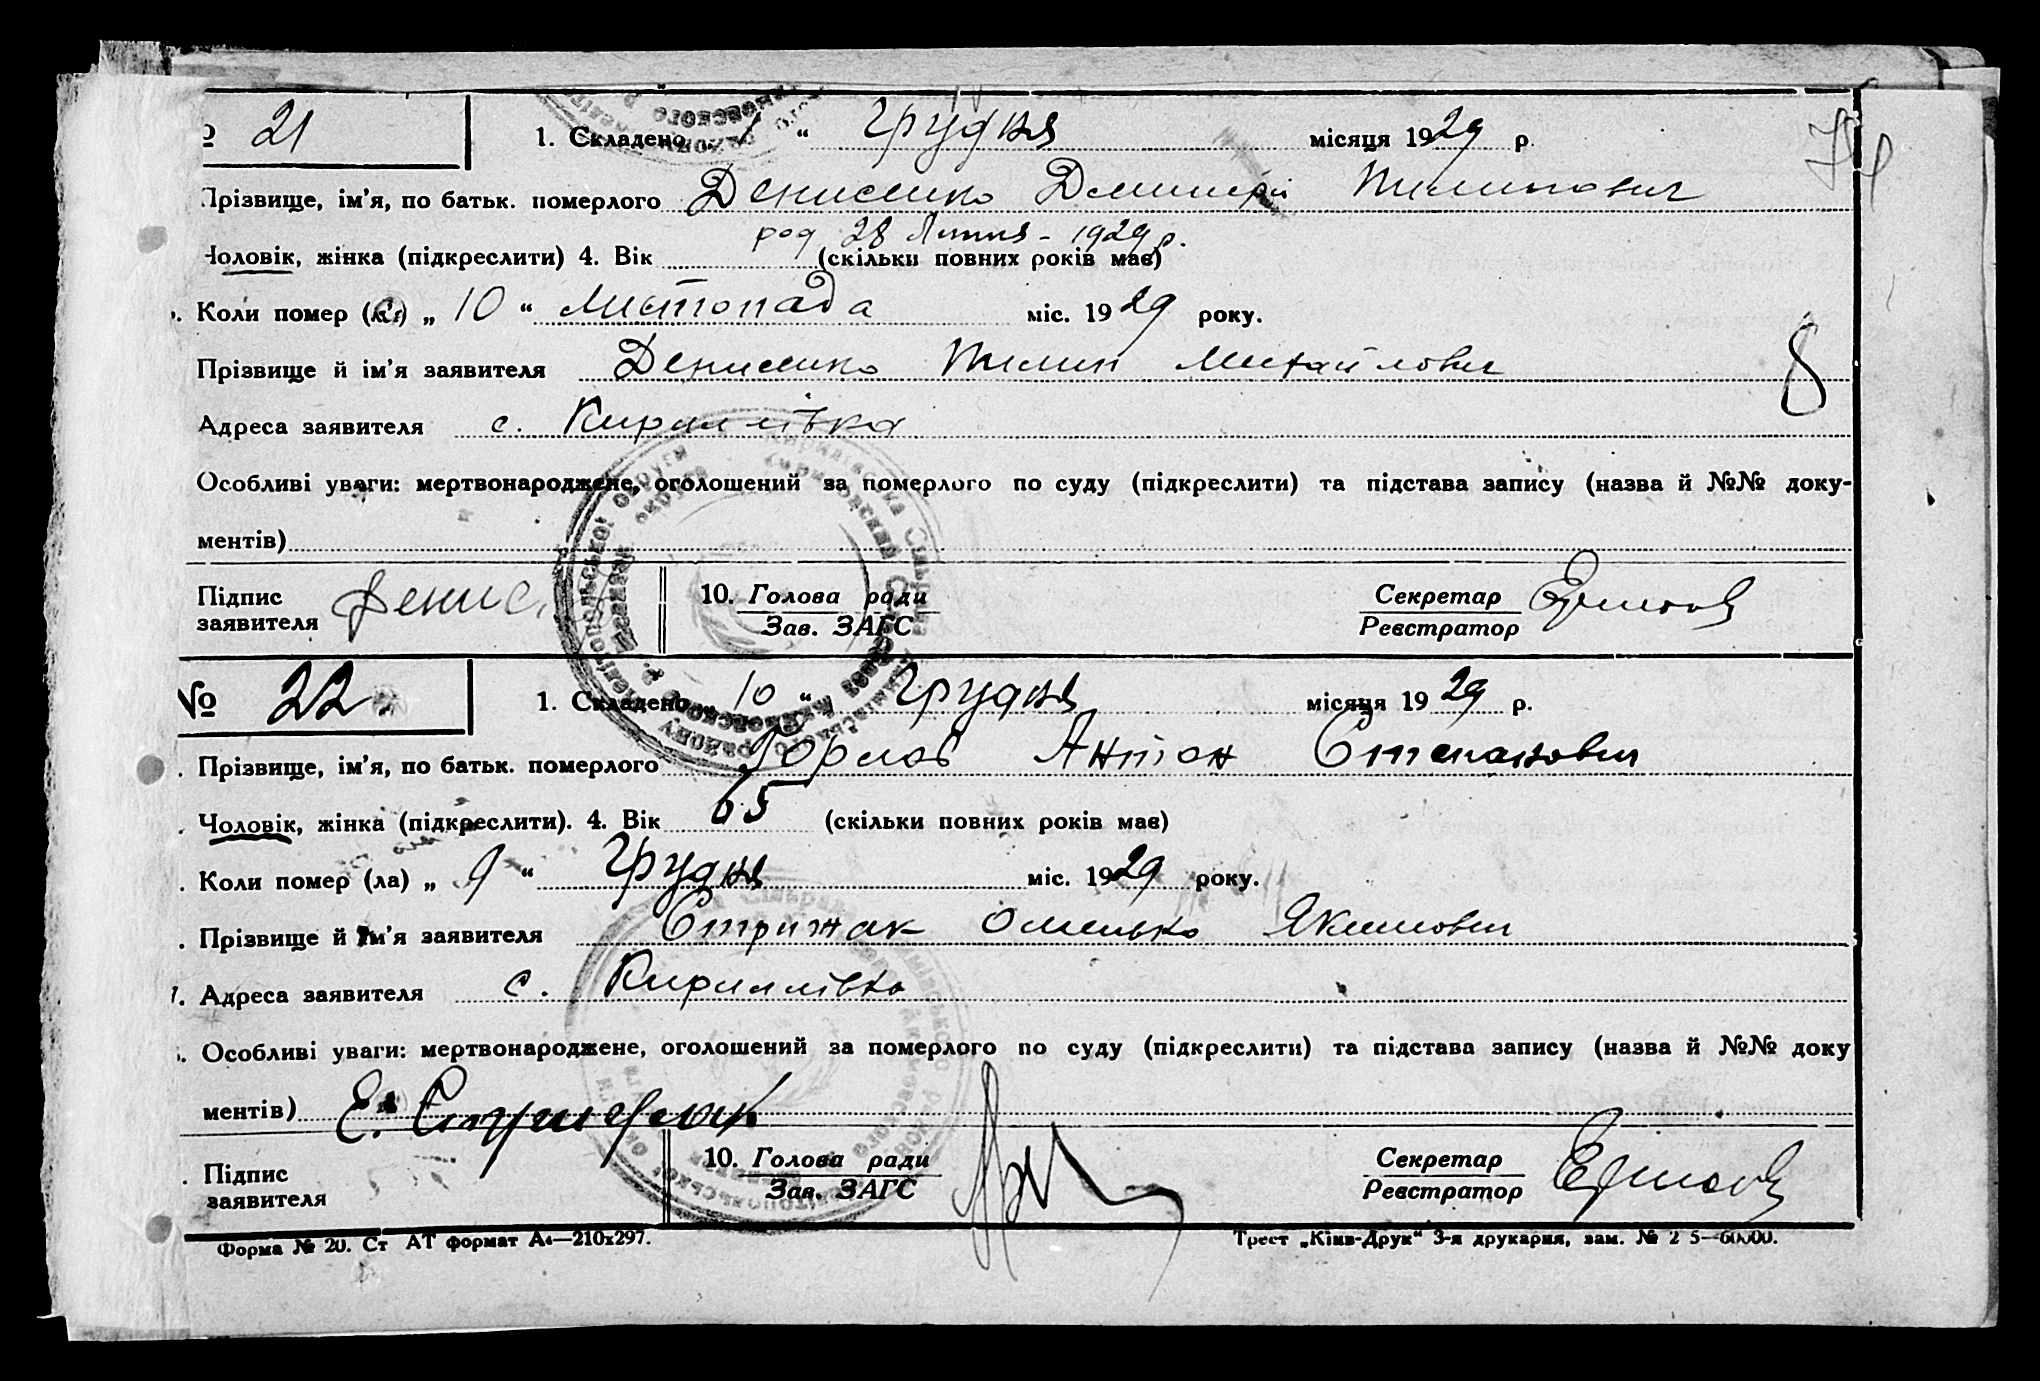 № 21
1. Складено „ 1 “ Грудня місяця 1929 р.
Прізвище, ім’я, по батьк. померлого Денисенко Дмитрій Тимішович
род 28 Липня - 1929 р.
Чоловік, жінка (підкреслити) 4. Вік (скільки повних років має)
Коли помер (ла) „ 10 “ Листопада міс. 1929 року.
Прізвище й ім’я заявителя Денисенко Михайлович
8
Адреса заявителя с. Кириллівка
Особливі уваги: мертвонароджене, оголошений за померлого по суду (підкреслити) та підстава запису (назва й №№ доку-
ментів)
Підпис заявителя Денис.
10. Голова ради
Зав. ЗАГС
Секретар
Реєстратор
№ 22.
1. Складено „ 10 “ Грудня місяця 1929 р.
Прізвище, ім’я, по батьк. померлого Антон Степанович
Чоловік, жінка (підкреслити). 4. Вік 65 (скільки повних років має)
Коли помер (ла) „ 9 “ Грудня міс. 1929 року.
Прізвище й ім’я заявителя Стрижак Омелько Якимович
7. Адреса заявителя с. Кириллівка
Особливі уваги: мертвонароджене, оголошений за померлого по суду (підкреслити) та підстава запису (назва й №№ доку
ментів)
Підпис заявителя
10. Голова ради
Зав. ЗАГС
Секретар
Реєстратор
Форма № 20. Ст АТ формат А4—210х297.
Трест „Київ-Друк“ 3-я друкарня, зам. № 2 5—60000.